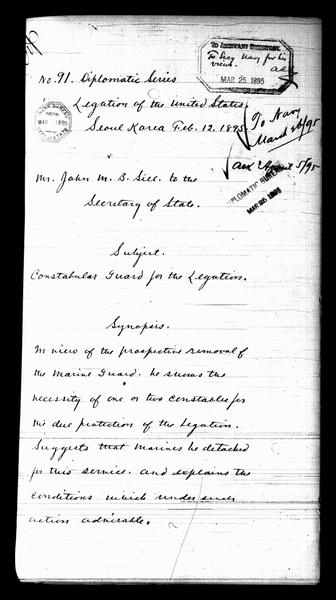 TO ASSISTANT SECRETARY.
To Secy Navy for his
views.
MAR 25, 1895
No. 91. Diplomatic Series
Legation of the United States.
Seoul Korea Feb. 12. 1895.
MAR 1895
To Navy
March 26/95
April 5/95
DIPLOMATIC BUREAU
MAR 25 1895
Mr. John M. B. Sill. to the
Secretary of State.
Subject.
Constabular Guard for the Legation.
Synopsis.
In view of the prospective removal of
the Marine Guard. he shows the
necessity of one or two constables for
the due protection of the Legation.
Suggests that marines be detached
for this service. and explains the
conditions which render such
action admirable.